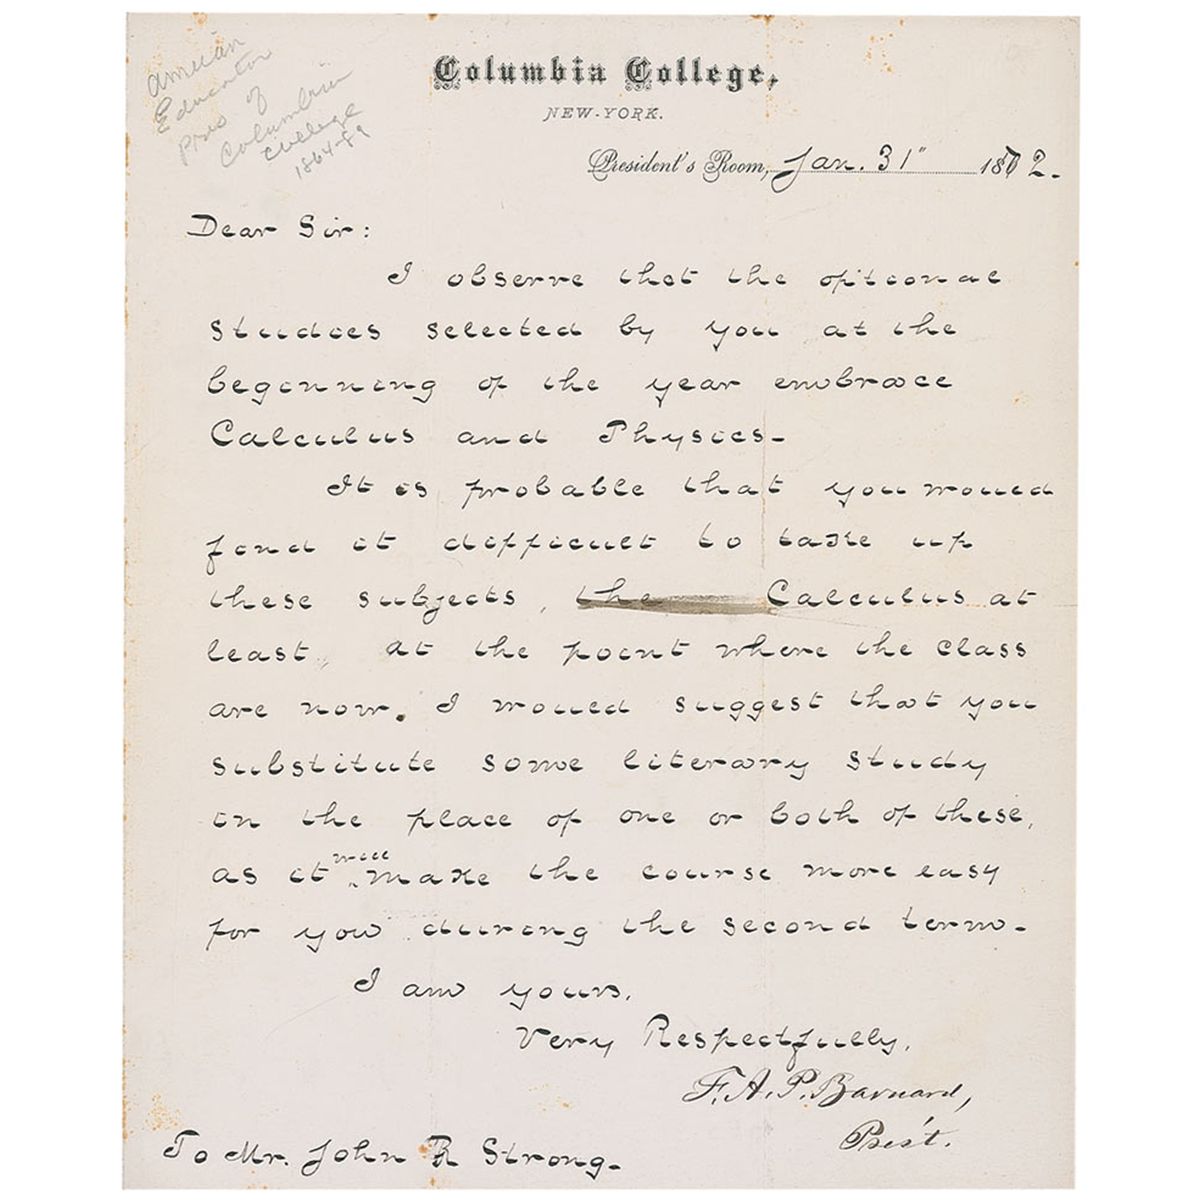 American
Educator
Pres of
Columbia
College
1864-89
Columbia College,
NEW-YORK.
President's Room, Jan. 31" 1872.
Dear Sir:
I observe that the optional
studies selected by you at the
beginning of the year embrace
Calculus and Physics-
It is probable that you would
find it difficult to take up
these subjects, the Calculus at
least, at the point where the class
are now. I would suggest that you
substitute some literary study
in the place of one or both of these,
as it will make the course more easy
for you during the second term-
I am yours,
Very Respectfully,
F. A. P. Barnard,
Pres't.
To Mr. John R Strong-